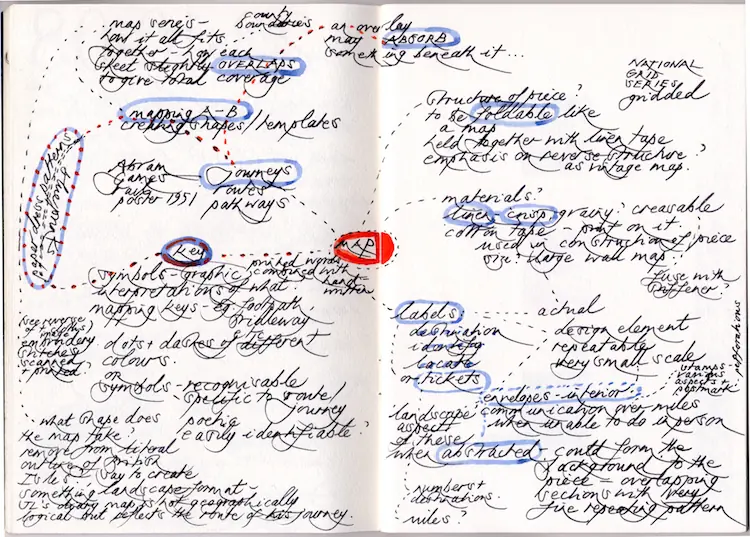 map series -
how it all fits
together - how each
sheet slightly OVERLAPS
to give total coverage
county
boundaries
an overlay
may ABSORB
something beneath it...
mapping A-B
creating shapes/templates
Abram
Games
poster 1951
Journeys
routes
pathways
paper dress patterns
MAP
Key
printed words
combined with
hand-
written
symbols - graphic
interpretations of what
mapping keys - eg. footpath
bridleway
dots + dashes of different
colours.
or
symbols - recognisable
specific to route/
journey
poetic
easily identifiable?
see reverse
embroidery
stitches
scanned
+ printed
what shape does
the map take?
remove from literal
outline of British
Isles - say to create
something landscape format -
diary map is not geographically
logical but reflects the route of his journey.
NATIONAL
GRID
SERIES
gridded
structure of piece?
to be foldable like
a map
held together with linen tape
emphasis on reverse structure?
as vintage map.
materials?
linen crisp grainy? creasable
cotton tape - print on it
used in construction of piece
size? large wall map?
Fuse with
stiffener?
labels
destination
identify
locate
or tickets
actual
design element
repeatable
very small scale
perforations
stamps
various
aspects +
postmark
envelopes - interior
communication over miles
when unable to do in person
landscape
aspect
of these
when abstracted - could form the
background to the
piece - overlapping
sections with very
fine repeating pattern
numbers +
destinations.
miles?